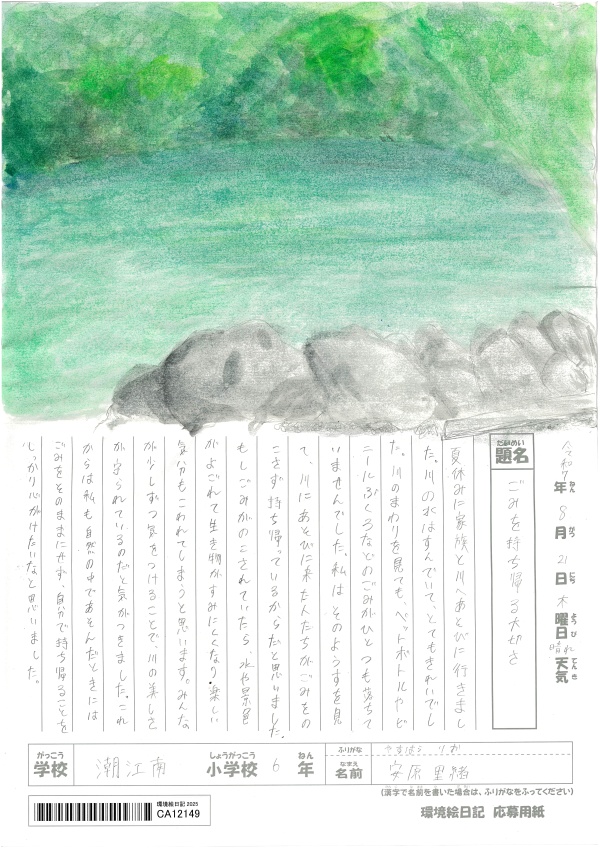 令和7年8月21日木曜日 晴れ 天気
ねん がつ にち ようび てんき
だいめい
題名
ごみを持ち帰る大切さ
夏休みに家族と川へあそびに行きまし
た。川の水はすんでいて、とてもきれいでし
た。川のまわりを見ても、ペットボトルやビ
ニールぶくろなどのごみがひとつも落ちて
いませんでした。私は、そのようすを見
て、川にあそびに来た人たちがごみをの
こさず持ち帰っているからだと思いました。
もしごみがのこされていたら、水や景色
がよごれて生き物がすみにくくなり、楽しい
気分もこわれてしまうと思います。みんな
が少しずつ気をつけることで、川の美しさ
が守られているのだと気がつきました。これ
からは私も自然の中であそんだときには
ごみをそのままにせず、自分で持ち帰ることを
しっかり心がけたいなと思いました。
がっこう しょうがっこう ねん
学校 潮江南 小学校 6年
ふりがな やすはら りお
なまえ
名前 安原 里緒
(漢字で名前を書いた場合は、ふりがなをふってください)
環境絵日記 応募用紙
環境絵日記 2025
CA12149